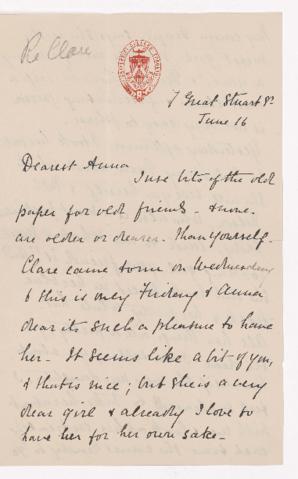 Re Clare
7 Great Stuart St
June 16
Dearest Anna
I use bits of the old
paper for old friends - & none
are older or dearer than yourself -
Clare came to me on Wednesday
& this is only Friday & Anna
dear its such a pleasure to have
her - It seems like a bit of you,
& that is nice; but she is a very
dear girl & already I love to
have her for her own sake -